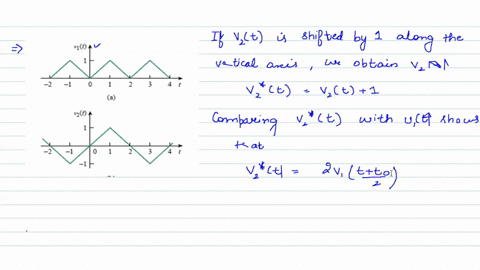 ⇒
v₁(t)
1
-2 -1 0 1 2 3 4 t
(a)
v₂(t)
1
-2 -1 0 1 2 3 4 t
-1
If V₂(t) is shifted by 1 along the
vertical axis, we obtain V₂
V₂*(t) = V₂(t) + 1
Comparing V₂*(t) with v₁(t) shows
that
V₂*(t) = 2V₁ (t+t₀/2)